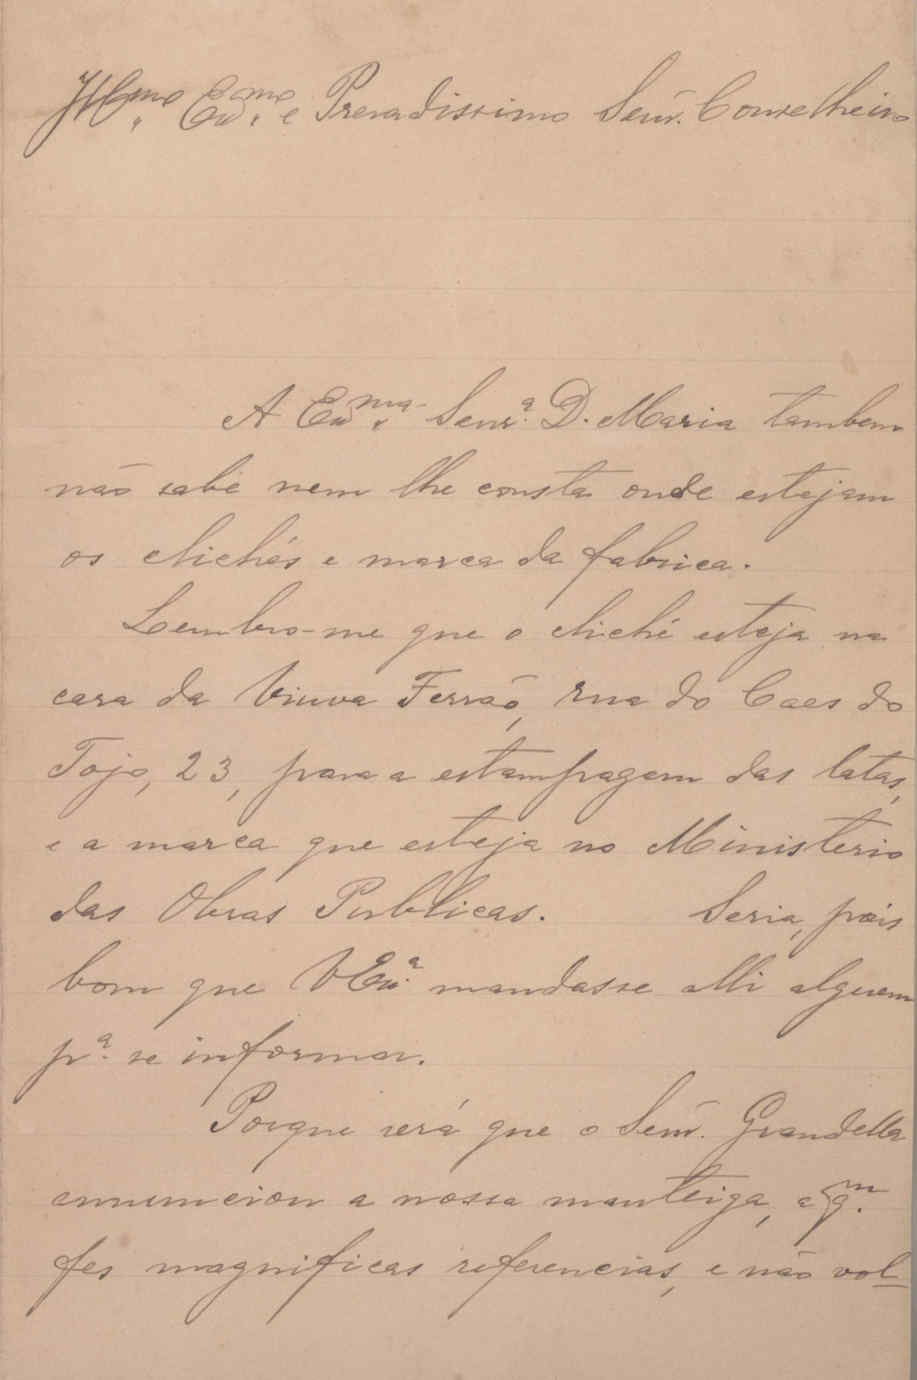 Ill.mo Ex.mo e Presadissimo Senr. Conselheiro
A Ex.ma Senr.a D. Maria tambem
não sabe nem lhe consta onde estejam
os clichés e marca da fabrica.
Lembro-me que o cliché esteja na
casa da Viuva Ferrão, rua do Caes do
Tojo, 23, para a estampagem das latas,
e a marca que esteja no Ministerio
das Obras Publicas. Seria, pois
bom que V Ex.a mandasse alli alguem
p.a se informar.
Porque será que o Senr. Grandella
annunciou a nossa manteiga, a q.m
fes magnificas referencias, e não vol-